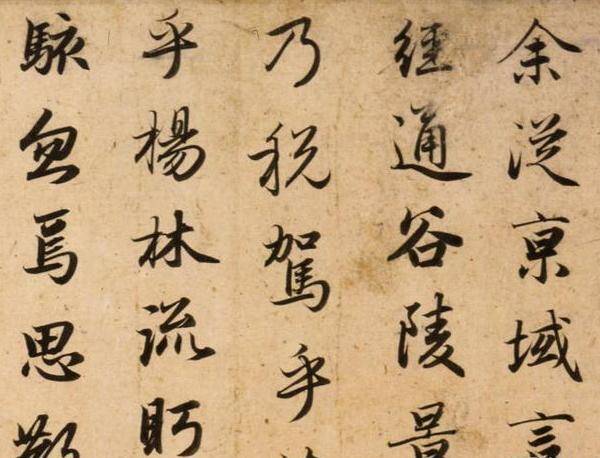 余從京域言
經通谷陵景
乃税駕乎
乎楊林流眄
駭忽焉思